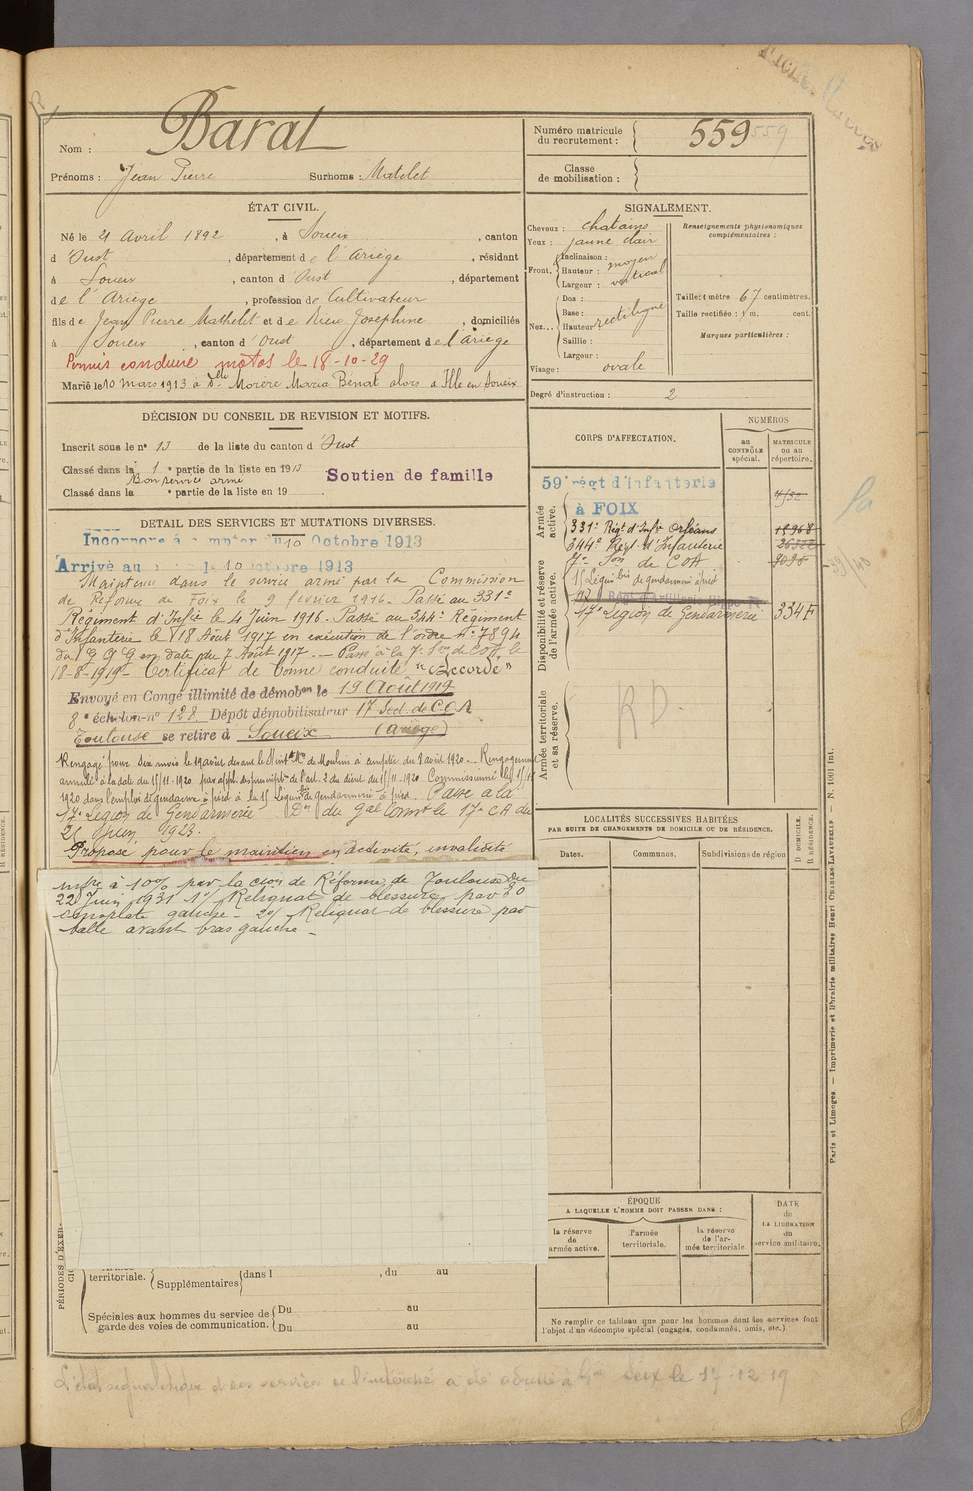 Nom : Barat
Prénoms : Jean Pierre Surnoms : Matelet
Numéro matricule du recrutement : 559 559
Classe de mobilisation :
ÉTAT CIVIL.
Né le 21 Avril 1892, à Soueix, canton
d'Oust, département de l'Ariège, résidant
à Soueix, canton d'Oust, département
de l'Ariège, profession de Cultivateur
fils de Jean Pierre Mathelet et de Rieu Joséphine, domiciliés
à Soueix, canton d'Oust, département de l'Ariège
Permis conduire motos le 18-10-29
Marié le 10 mars 1913 à Dlle Morère Maria Bénat alors à Ille en Soueix
SIGNALEMENT.
Cheveux : chatains
Yeux : jaune clair
Front. Inclinaison :
Hauteur : moyen
Largeur : vertical
Nez... Dos :
Base : rectiligne
Hauteur
Saillie :
Largeur :
Visage : ovale
Renseignements physionomiques complémentaires :
Taille : 1 mètre 67 centimètres.
Taille rectifiée : 1 m. cent.
Marques particulières :
Degré d'instruction : 2
DÉCISION DU CONSEIL DE REVISION ET MOTIFS.
Inscrit sous le n° 13 de la liste du canton d'Oust
Classé dans la 1e partie de la liste en 1913
Bon service armé
Soutien de famille
Classé dans la e partie de la liste en 19
DETAIL DES SERVICES ET MUTATIONS DIVERSES.
Incorporé à compter du 10 Octobre 1913
Arrivé au le 10 octobre 1913
Maintenu dans le service armé par la Commission
de Réforme de Foix le 9 février 1916. Passé au 331e
Régiment d'Infie le 4 Juin 1916. Passé au 344e Régiment
d'Infanterie le 18 Août 1917 en exécution de l'ordre n° 7894
du G Q G en date du 7 Août 1917. — Passé à la 7e Son de COA le
18-8-1919 — Certificat de bonne conduite "Accordé"
Envoyé en Congé illimité de démobon le 19 Août 1919
8e échelon n° 128 Dépôt démobilisateur 17 Sect. de COA
Toulouse se retire à Soueix (Ariège)
Rengagé pour dix mois le 19 avril devant le Sint Mre de Moulins à compter du 8 avril 1920. — Rengagement
annulé à la date du 15/11-1920 par appl. des prescriptons de l'art. 2 du décret du 15/11-1920. Commissionné le 15/11
1920 dans l'emploi de gendarme à pied à la 15 Légion bis de gendarmerie à pied. Passé à la
17e Légion de Gendarmerie Don du Gal Commt le 17e CA du
21 Juin 1923.
Proposé pour le maintien en activité, invalidité
infre à 10% par la Cion de Réforme de Toulouse du
22 Juin 1931 1°/ Reliquat de blessure par EO
omoplate gauche — 2°/ Reliquat de blessure par
balle avant bras gauche —
CORPS D'AFFECTATION.
NUMÉROS
au CONTRÔLE spécial.
MATRICULE ou au répertoire.
Armée active.
59e régt d'infanterie
à FOIX
331e Régt d'Infie Orléans
344e Régt d'Infanterie
Disponibilité et réserve de l'armée active.
7e Son de COA
15 Légion bis de gendarmerie à pied
17e Légion de Gendarmerie 334 F
Armée territoriale et sa réserve.
RD.
LOCALITÉS SUCCESSIVES HABITÉES
PAR SUITE DE CHANGEMENTS DE DOMICILE OU DE RÉSIDENCE.
Dates. Communes. Subdivisions de région
D. DOMICILE. R. RÉSIDENCE.
ÉPOQUE
A LAQUELLE L'HOMME DOIT PASSER DANS :
la réserve de armée active.
l'armée territoriale.
la réserve de l'armée territoriale.
DATE de LA LIBÉRATION du service militaire.
Ne remplir ce tableau que pour les hommes dont les services font
l'objet d'un décompte spécial (engagés, condamnés, omis, etc.).
PÉRIODES D'EXER-
territoriale. Supplémentaires dans l , du au
Spéciales aux hommes du service de garde des voies de communication. Du au
Du au
L'état signalétique des services de l'intéressé a été adressé à Seix le 17-12-19
Paris et Limoges. — Imprimerie et librairie militaires Henri CHARLES-LAVAUZELLE — N. 1001 Int.
R RÉSIDENCE.